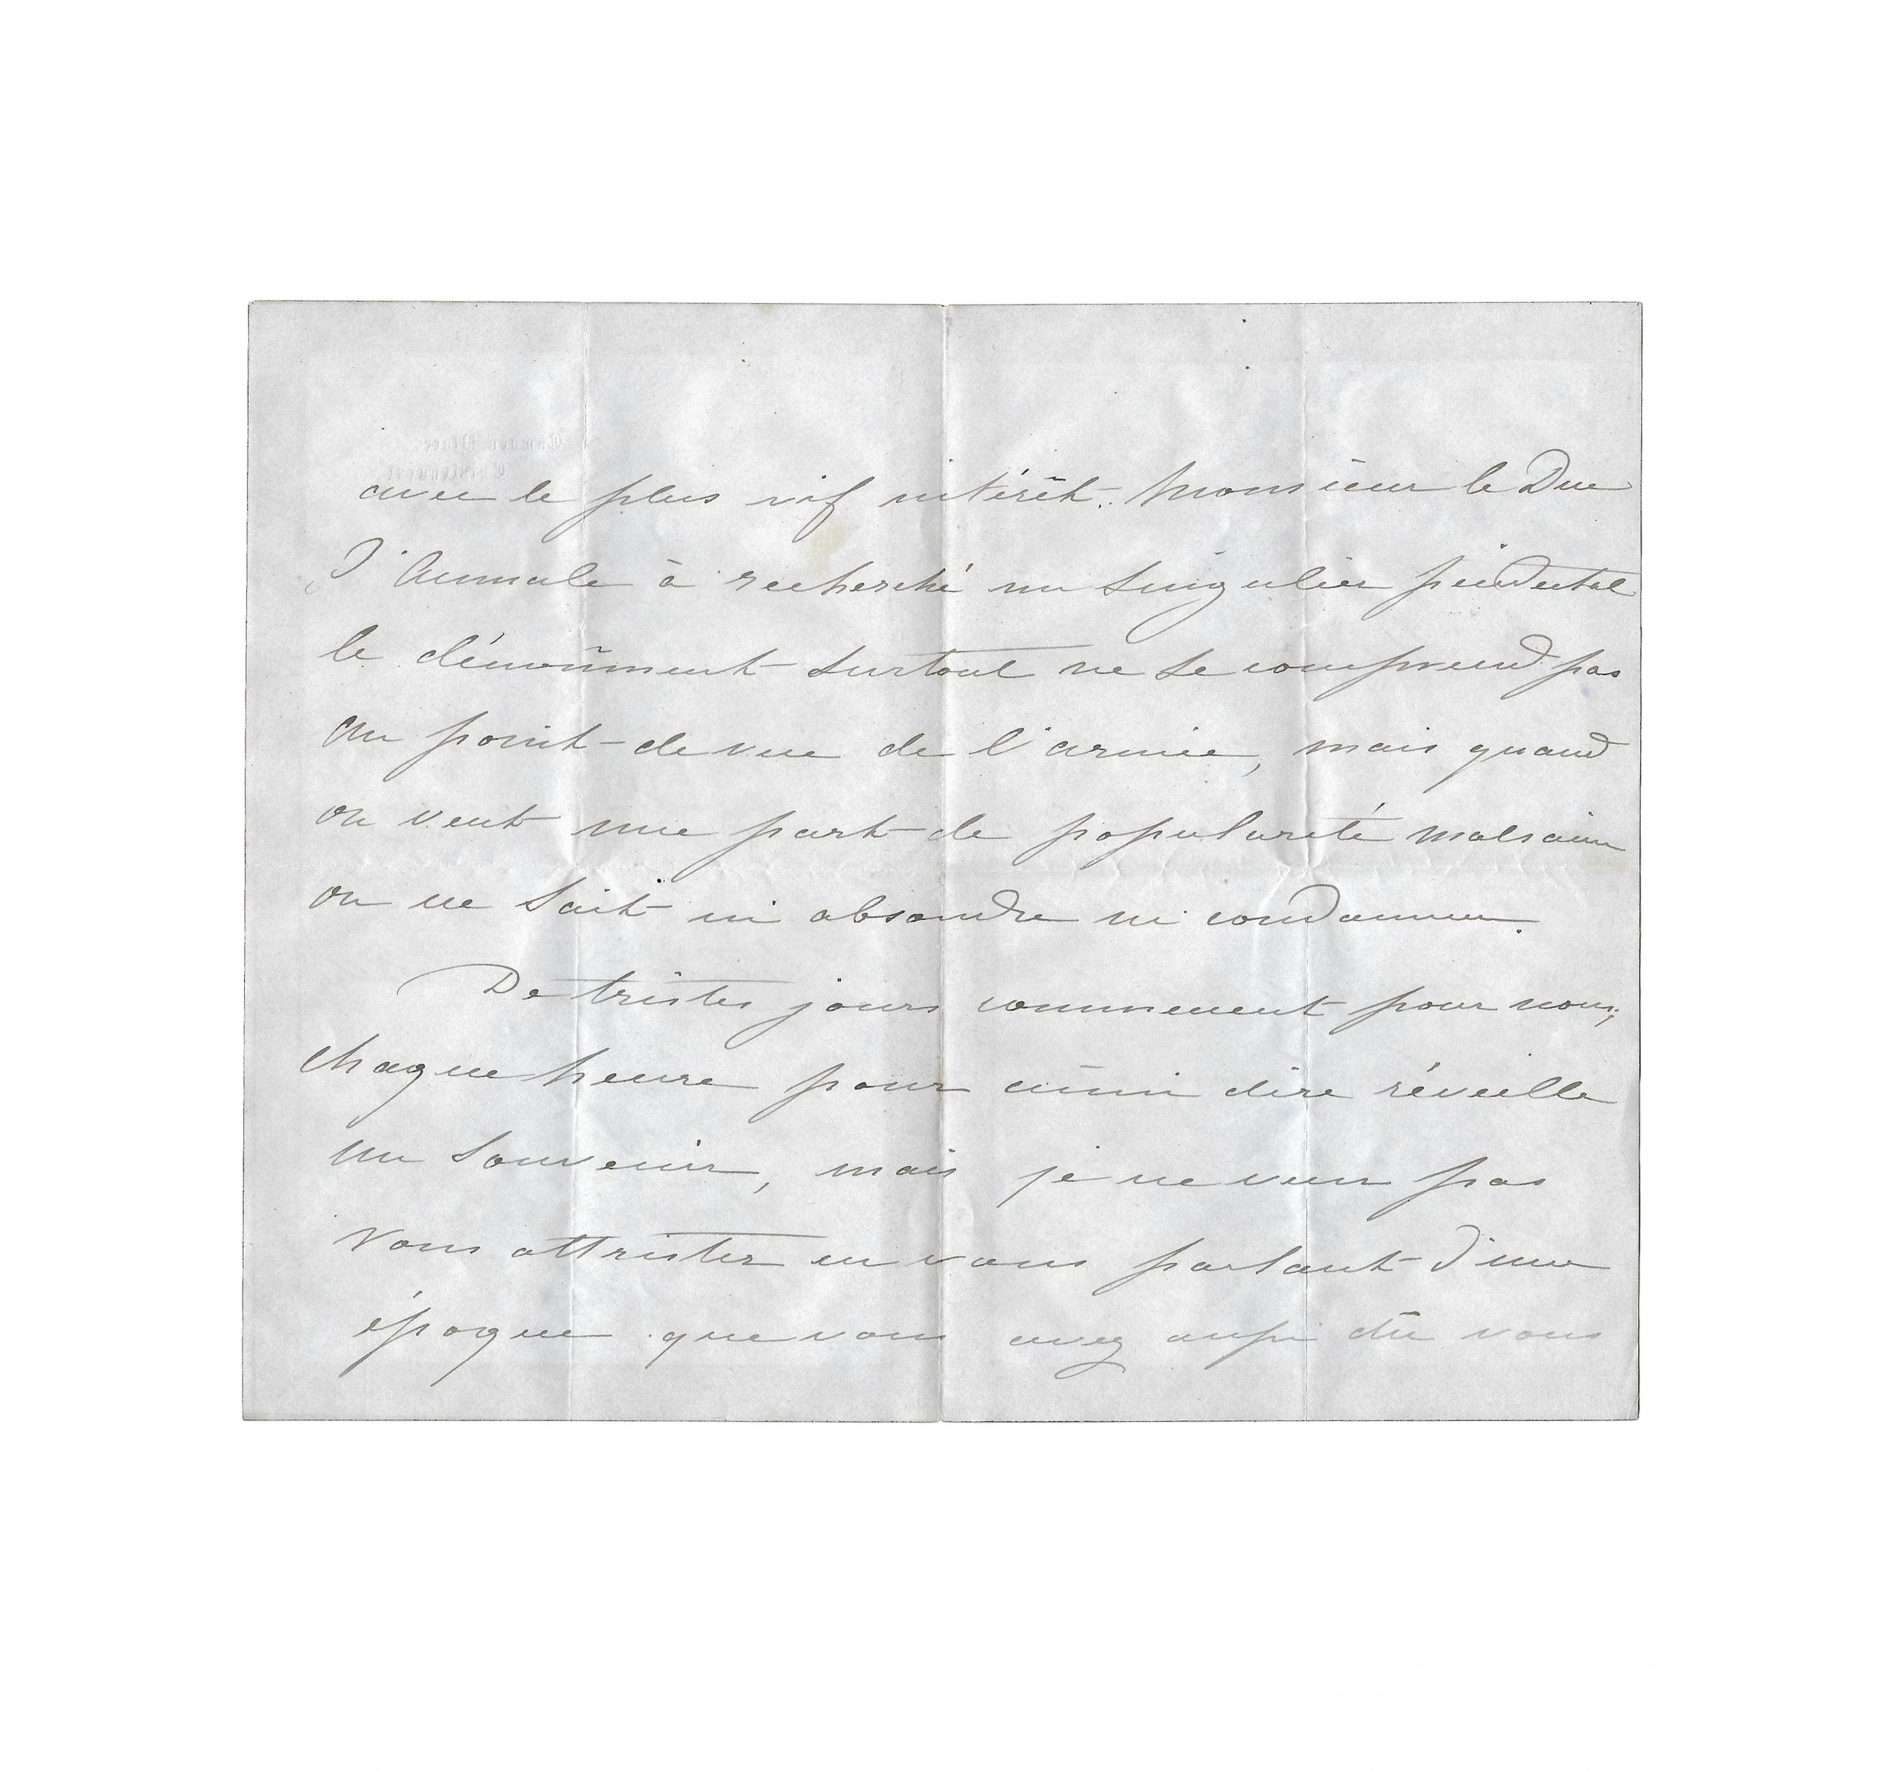 avec le plus vif intérêt. Monsieur le Duc
d'Aumale à recherché un singulier piedestal
le dénoûment surtout ne se comprend pas
au point de vue de l'armée, mais quand
on veut une part de popularité malsaine
on ne sait ni absoudre ni condamner.
De tristes jours commencent pour nous;
chaque heure pour ainsi dire réveille
un souvenir, mais je ne veux pas
vous attrister en vous parlant d'une
époque que vous avez aussi dû vous